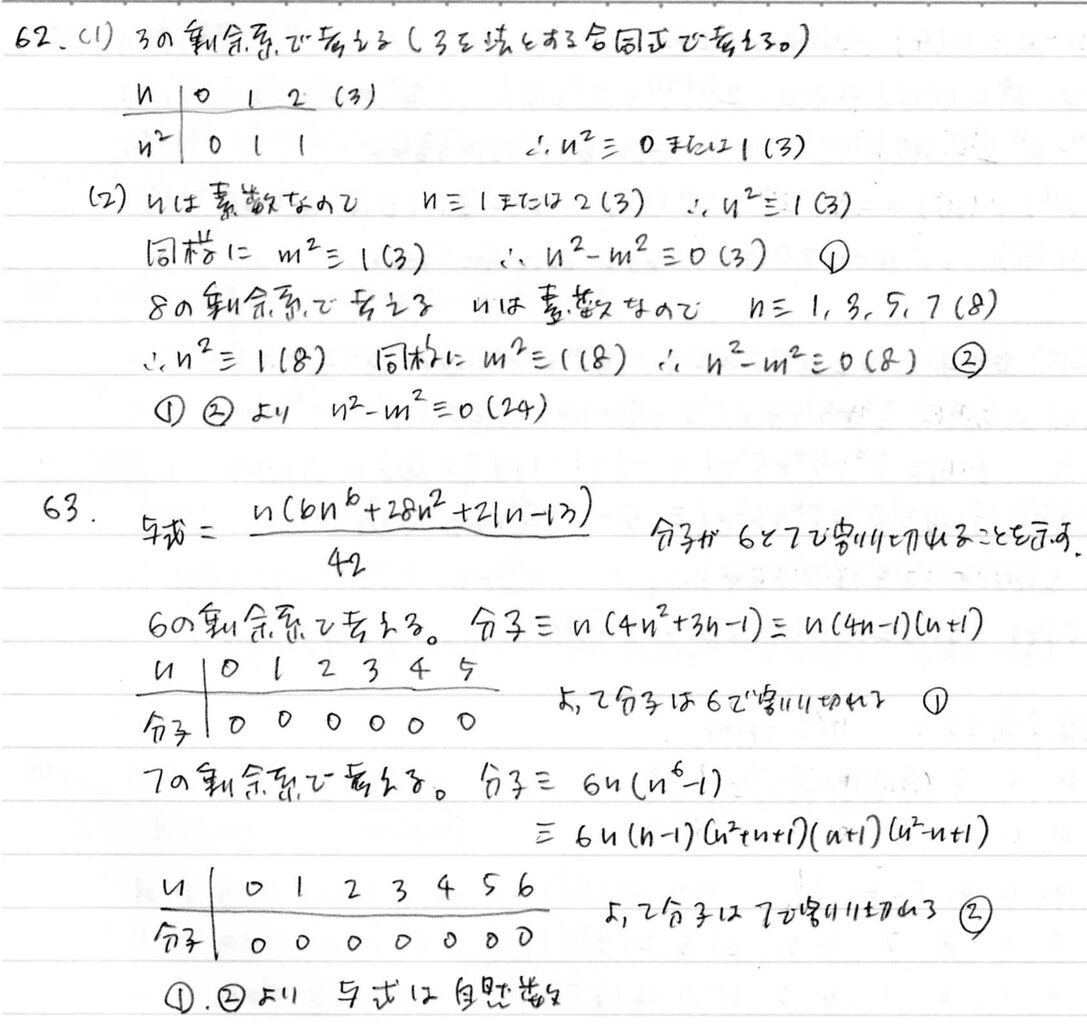 62. (1) 3の剰余系で考える (3を法とする合同式で考える。)
n | 0 1 2 (3)
n² | 0 1 1 ∴ n² ≡ 0 または 1 (3)
(2) nは素数なので n ≡ 1 または 2 (3) ∴ n² ≡ 1 (3)
同様に m² ≡ 1 (3) ∴ n² - m² ≡ 0 (3) ①
8の剰余系で考える nは素数なので n ≡ 1, 3, 5, 7 (8)
∴ n² ≡ 1 (8) 同様に m² ≡ 1 (8) ∴ n² - m² ≡ 0 (8) ②
① ② より n² - m² ≡ 0 (24)
63. 与式 = n(6n⁶+28n²+21n-13) / 42 分子が 6と7で割り切れることを示す.
6の剰余系で考える。 分子 ≡ n(4n²+3n-1) ≡ n(4n-1)(n+1)
n | 0 1 2 3 4 5
分子 | 0 0 0 0 0 0 よって分子は6で割り切れる ①
7の剰余系で考える。 分子 ≡ 6n(n⁶-1)
≡ 6n(n-1)(n²+n+1)(n+1)(n²-n+1)
n | 0 1 2 3 4 5 6
分子 | 0 0 0 0 0 0 0 よって分子は7で割り切れる ②
①.② より 与式は自然数